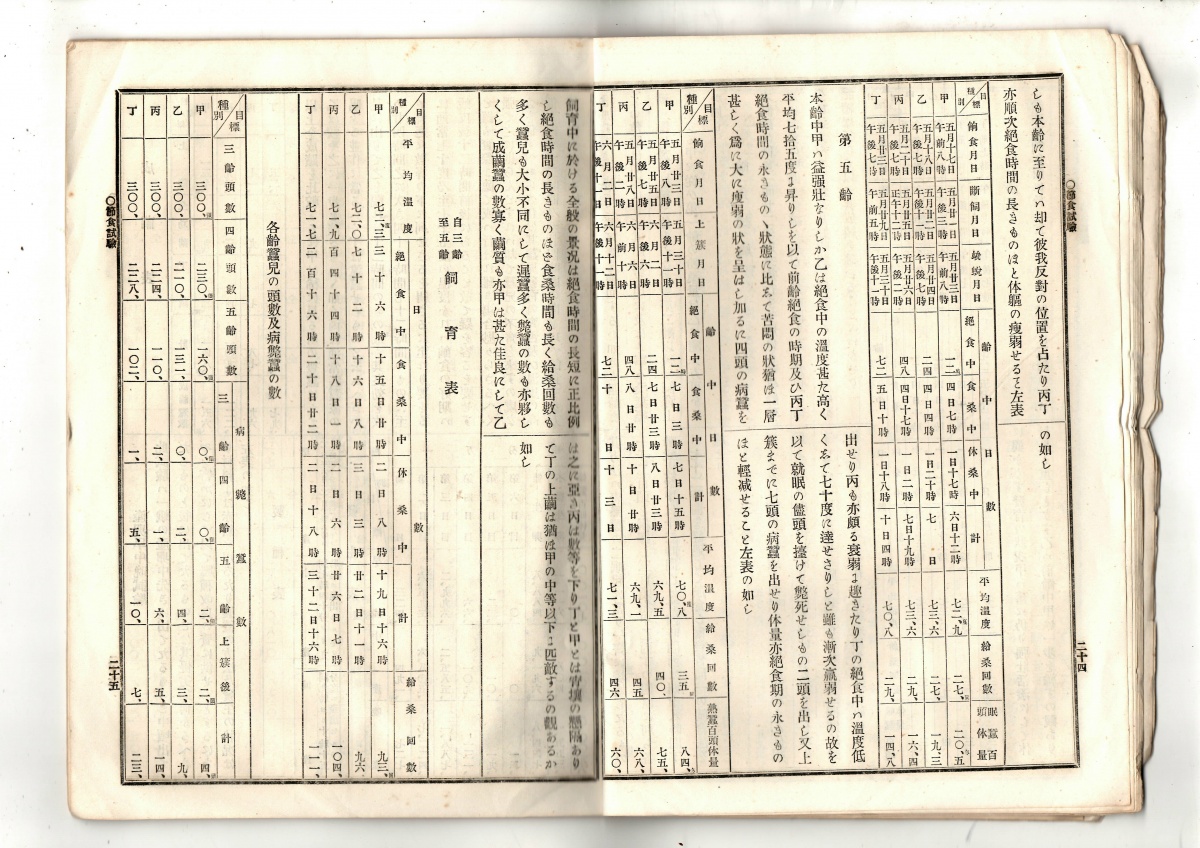 ○節食試驗
二十四
しも本齡に至りてハ却て彼我反對の位置を占たり丙丁
亦順次絕食時間の長きものほと体軀の瘦弱せると左表
の如し
目標 種別 餉食月日 斷飼月日 蛻月日 齡中日數 絕食中 食桑中 休桑中 計 平均溫度 給桑回數 眠蠶百頭体量
甲 五月十七日午前八時 五月廿一日午後三時 五月廿三日午前八時 一二時 四日七時 一日十七時 六日十二時 七二、九 二七、 二〇、五
乙 五月十八日午後七時 五月廿二日午後十一時 五月廿四日午後七時 二四 四日四時 一日二十時 七日 七三、六 二七、 一九、三
丙 五月二十日午後七時 五月廿五日 五月廿六日午後二時 四八 四日十七時 一日二時 七日十九時 七三、六 二九、 一六、四
丁 五月廿三日午後七時 五月廿九日午前五時 五月三十日午後十一時 七二 五日十時 一日十八時 十日四時 七〇、八 二九、 一四、八
第五齡
本齡中甲ハ益强壯なりしか乙は絕食中の溫度甚た高く
平均七拾五度に昇りしを以て前齡絕食の時期及ひ丙丁
絕食時間の永きものゝ狀態に比して苦悶の狀猶ほ一層
甚しく爲に大に瘦弱の狀を呈はし加るに四頭の病蠶を
出せり丙も亦頗る衰弱に趣きたり丁の絕食中ハ溫度低
くして七十度に達せさりしと雖も漸次羸弱せるの故を
以て就眠の儘頭を擡けて斃死せしもの二頭を出し又上
簇までに七頭の病蠶を出せり体量亦絕食期の永きもの
ほと輕减せること左表の如し
目標 種別 餉食月日 上簇月日 齡中日數 絕食中 食桑中 計 平均溫度 給桑回數 熟蠶百頭体量
甲 五月廿三日午後八時 五月三十日午後十一時 一二時 七日三時 七日十五時 七〇、八 三五 八四、
乙 五月廿五日午後七時 六月二日午後六時 二四 七日廿三時 八日廿三時 六九、五 四〇、 七五、
丙 五月廿八日午後七時 六月六日午前十時 四八 八日廿時 十日廿時 六九、一 四五 六八、
丁 六月二日午後十一時 六月十二日午後十一時 七二 十日 十三日 七一、三 四六 六〇、
飼育中に於ける全般の景况は絕食時間の長短に正比例
し絕食時間の長きものほと食桑時間も長く給桑回數も
多く蠶兒も大小不同にして遲蠶多く斃蠶の數も亦夥し
くして成繭蠶の數寡く繭質も亦甲は甚た佳良にして乙
は之に亞き丙は數等を下り丁と甲とは霄壤の懸隔あり
て丁の上繭は猶ほ甲の中等以下に匹敵するの觀あるか
如し
自三齡至五齡 飼育表
目標 種別 平均溫度 日數 絕食中 食桑中 休桑中 計 給桑回數
甲 七二、三 三十六時 十五日廿時 二日八時 十九日十六時 九三、
乙 七二、〇 七十二時 十六日八時 三日三時 廿二日十一時 九六、
丙 七一、九 百四十四時 十八日一時 二日六時 廿六日七時 一〇四、
丁 七一、七 二百十六時 二十日廿二時 二日十八時 三十二日十六時 一一一、
各齡蠶兒の頭數及病斃蠶の數
目標 種別 三齡頭數 四齡頭數 五齡頭數 病斃蠶數 三齡 四齡 五齡 上簇後 計
甲 三〇〇、 二三〇、 一六〇、 〇、 〇、 二、 二、 四、
乙 三〇〇、 二一〇、 一三一、 〇、 二、 四、 三、 九、
丙 三〇〇、 二二四、 一一〇、 二、 一、 六、 五、 一四、
丁 三〇〇、 二二八、 一〇二、 一、 五、 一〇、 七、 二三、
○節食試驗
二十五